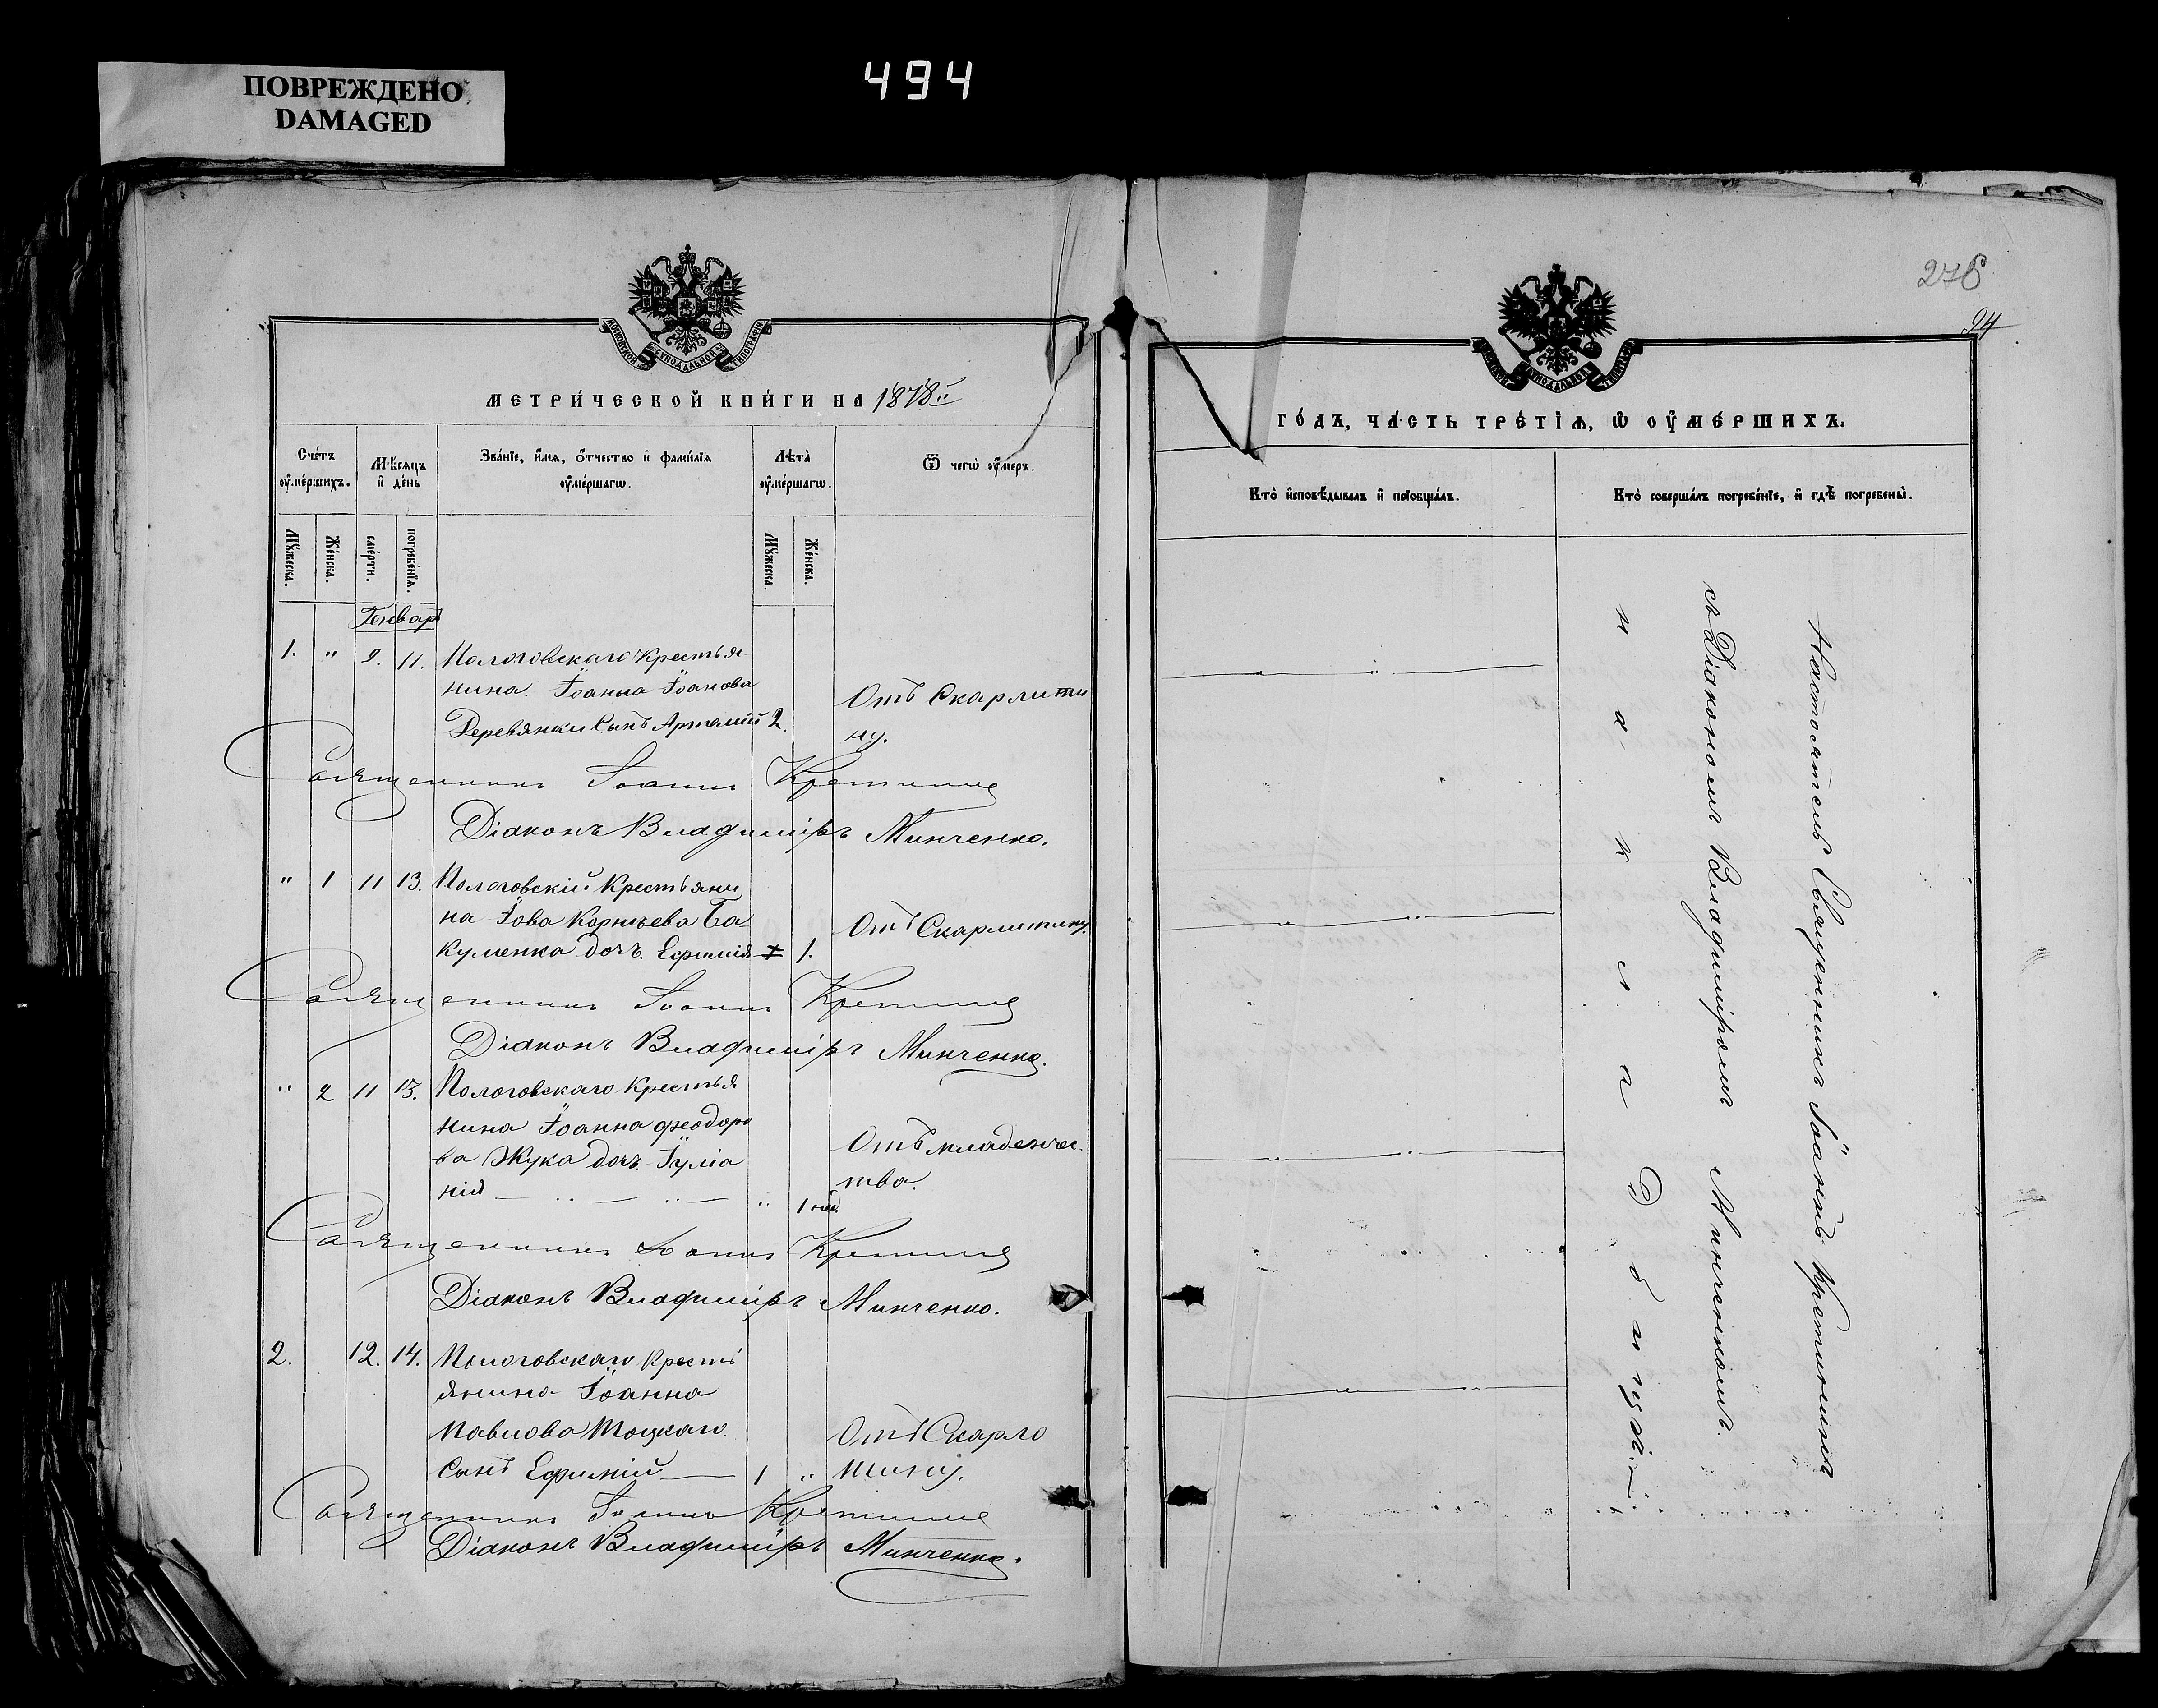 494
ПОВРЕЖДЕНО
DAMAGED
276
94
МОСКОВСКОЙ СѴНОДАЛЬНОЙ ТИПОГРАФІИ
МЕТРИ́ЧЕСКОЙ КНИ́ГИ НА 1878й
Сче́тъ оу҆ме́ршихъ.
Мѣ́сяцъ и҆ де́нь
Зва́нїе, и҆́мѧ, ѻ҆́тчество и҆ фами́лїѧ оу҆ме́ршагѡ.
Лѣта̀ оу҆ме́ршагѡ.
Ѿ чегѡ̀ оу҆́меръ.
Мꙋ́жеска.
Же́нска.
сме́рти.
погребе́нїѧ.
Мꙋ́жеска.
Же́нска.
Генварь
1. " 9. 11. Пологовскаго Крестья
нина Іоанна Іоанова
Деревянки Сынъ Артемій 2.
Отъ Скарлати
ну.
Священникъ Іоаннъ
Діаконъ Владиміръ Минченко.
" 1 11 13. Пологовскій Крестьяни
на Іова Корнѣева Ба
куменка дочь Ефимія 1.
Отъ Скарлатину.
Священникъ Іоаннъ
Діаконъ Владиміръ Минченко.
" 2 11 13. Пологовскаго Крестья
нина Іоанна Феодоро
ва Жука дочь Іуліа
нія " 1 нед.
Отъ младенчес
тва.
Священникъ Іоаннъ
Діаконъ Владиміръ Минченко.
2. 12. 14. Пологовскаго Кресть
янина Іоанна
Павлова Тоцкаго
Сынъ Ефимій 1 "
Отъ Скарло
тину.
Священникъ Іоаннъ
Діаконъ Владиміръ Минченко.
МОСКОВСКОЙ СѴНОДАЛЬНОЙ ТИПОГРАФІИ
ГО́ДЪ, ЧА́СТЬ ТРЕ́ТЇѦ, Ѡ҆ ОУ҆МЕ́РШИХЪ.
Кто̀ и҆сповѣ́дывалъ и҆ прїѡбща́лъ.
Кто̀ соверша́лъ погребе́нїе, и҆ гдѣ̀ погребены̀.
Настоятель Священникъ Іоаннъ
съ Діакономъ Владиміромъ Минченкомъ.
на кладбищѣ.